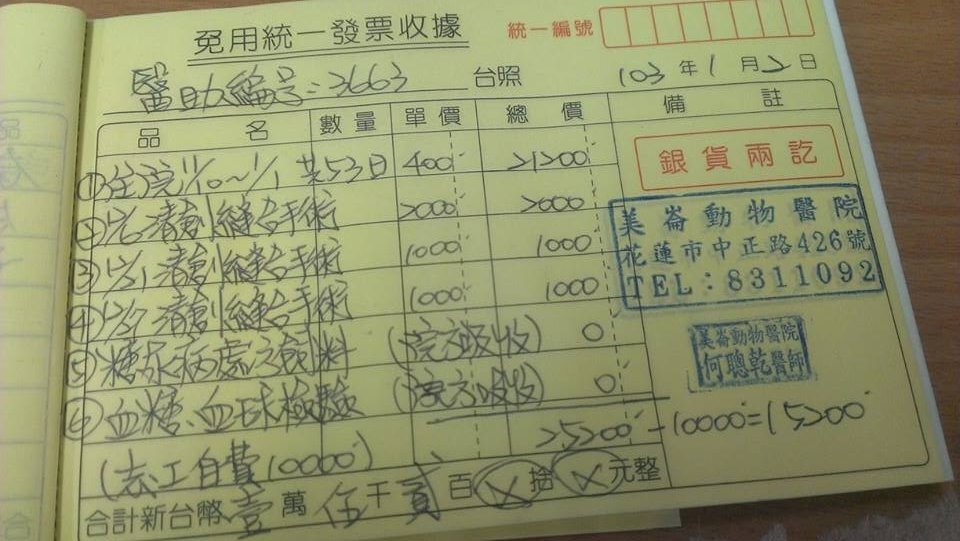 免用統一發票收據
統一編號
醫助編号:3663 台照 103年1月2日
品名 數量 單價 總價 備註
①住院11/10~1/1 共53日 400 21200
銀貨兩訖
清創縫合手術 2000 2000
③12/1清創縫合手術 1000 1000
清創縫合手術 1000 1000
⑤糖尿病處方飼料 (院方吸收) 0
⑥血糖、血球檢驗 (院方吸收) 0
25200-10000=15200
(志工自費10000)
合計新台幣壹萬伍千貳百X拾X元整
美崙動物醫院
花蓮市中正路426號
TEL:8311092
美崙動物醫院
何聰乾醫師